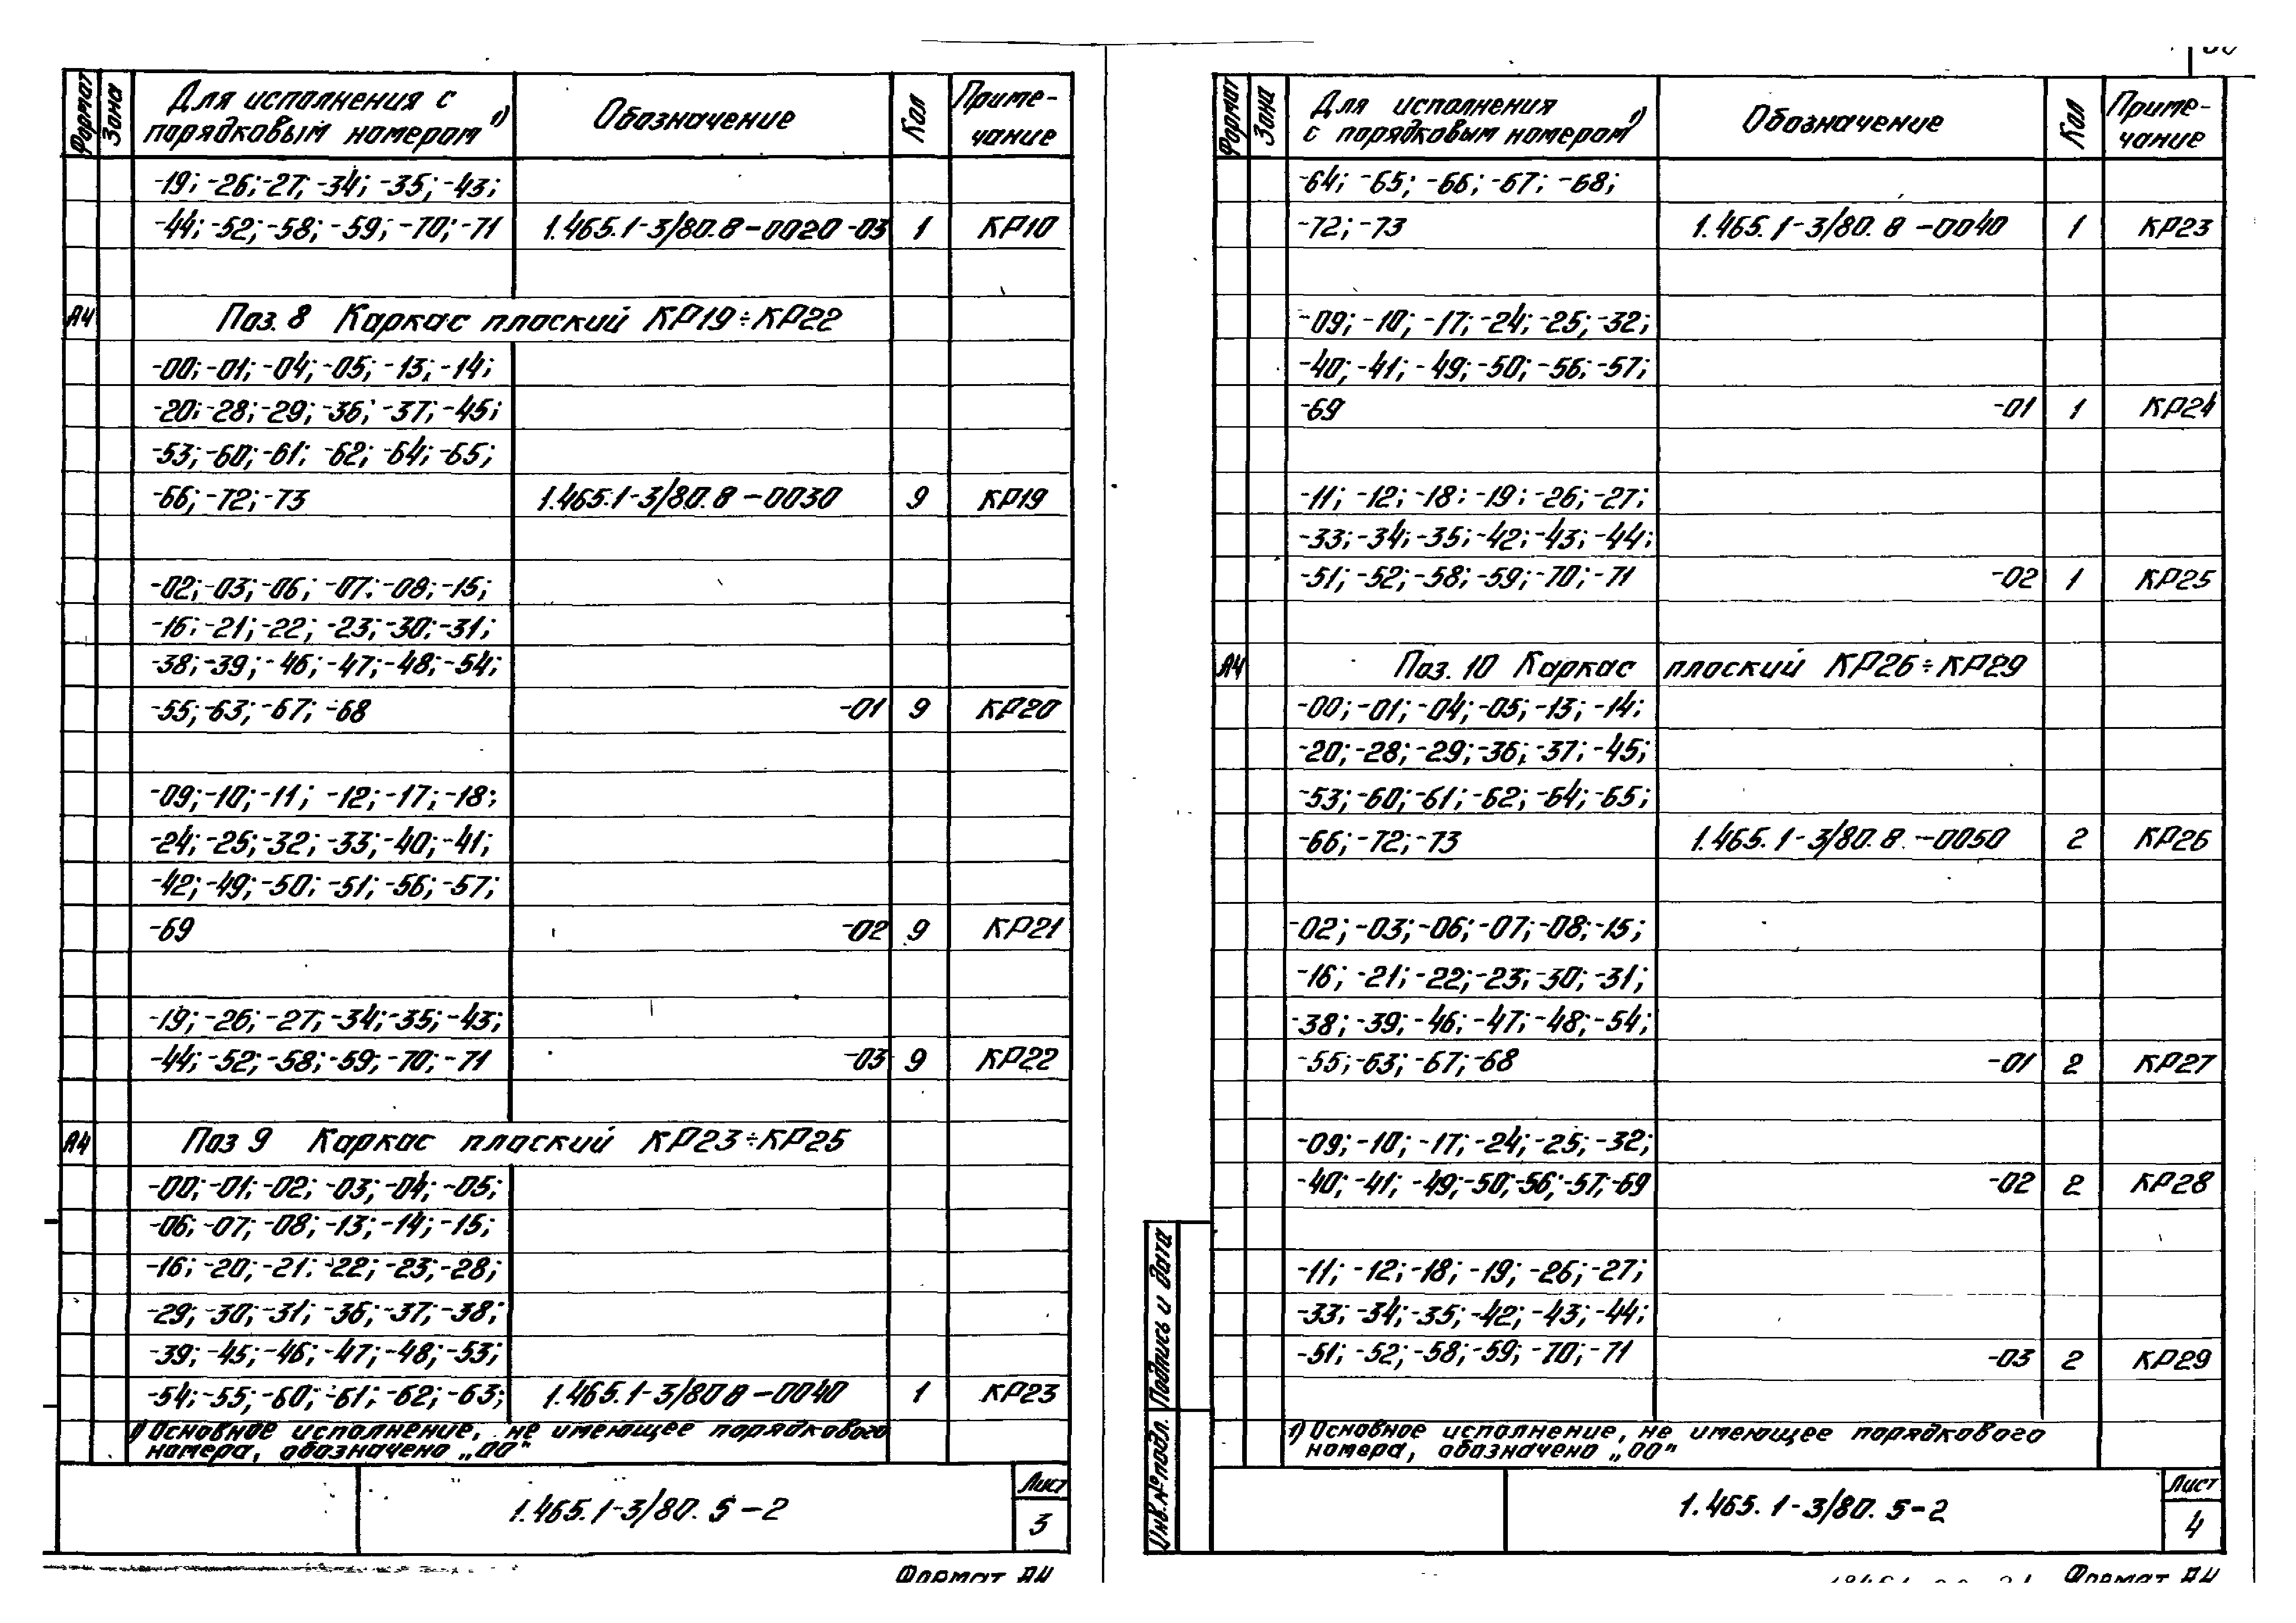 Формат Зона Для исполнения с порядковым номером 1) Обозначение Кол Приме-чание
-19; -26; -27; -34; -35; -43;
-44; -52; -58; -59; -70; -71 1.465.1-3/80.8-0020 -03 1 КР10
А4 Поз. 8 Каркас плоский КР19÷КР22
-00; -01; -04; -05; -13; -14;
-20; -28; -29; -36; -37; -45;
-53; -60; -61; -62; -64; -65;
-66; -72; -73 1.465.1-3/80.8-0030 9 КР19
-02; -03; -06; -07; -08; -15;
-16; -21; -22; -23; -30; -31;
-38; -39; -46; -47; -48; -54;
-55; -63; -67; -68 -01 9 КР20
-09; -10; -11; -12; -17; -18;
-24; -25; -32; -33; -40; -41;
-42; -49; -50; -51; -56; -57;
-69 -02 9 КР21
-19; -26; -27; -34; -35; -43;
-44; -52; -58; -59; -70; -71 -03 9 КР22
А4 Поз 9 Каркас плоский КР23÷КР25
-00; -01; -02; -03; -04; -05;
-06; -07; -08; -13; -14; -15;
-16; -20; -21; -22; -23; -28;
-29; -30; -31; -36; -37; -38;
-39; -45; -46; -47; -48; -53;
-54; -55; -60; -61; -62; -63; 1.465.1-3/80 8-0040 1 КР23
1) Основное исполнение, не имеющее порядкового
номера, обозначено „00"
1.465.1-3/80. 5-2 Лист
3
Формат А4
Формат Зона Для исполнения с порядковым номером 1) Обозначение Кол Приме-чание
-64; -65; -66; -67; -68;
-72; -73 1.465.1-3/80.8-0040 1 КР23
-09; -10; -17; -24; -25; -32;
-40; -41; -49; -50; -56; -57;
-69 -01 1 КР24
-11; -12; -18; -19; -26; -27;
-33; -34; -35; -42; -43; -44;
-51; -52; -58; -59; -70; -71 -02 1 КР25
А4 Поз. 10 Каркас плоский КР26÷КР29
-00; -01; -04; -05; -13; -14;
-20; -28; -29; -36; -37; -45;
-53; -60; -61; -62; -64; -65;
-66; -72; -73 1.465.1-3/80.8-0050 2 КР26
-02; -03; -06; -07; -08; -15;
-16; -21; -22; -23; -30; -31;
-38; -39; -46; -47; -48; -54;
-55; -63; -67; -68 -01 2 КР27
-09; -10; -17; -24; -25; -32;
-40; -41; -49; -50; -56; -57; -69 -02 2 КР28
-11; -12; -18; -19; -26; -27;
-33; -34; -35; -42; -43; -44;
-51; -52; -58; -59; -70; -71 -03 2 КР29
1) Основное исполнение, не имеющее порядкового
номера, обозначено „00"
Инв.№подл. Подпись и дата
1.465.1-3/80. 5-2 Лист
4
Формат А4